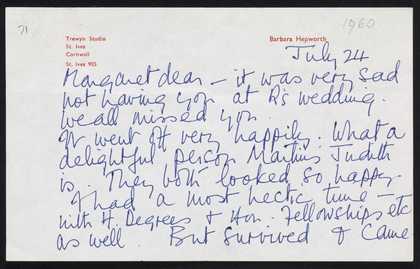 71
1960
Trewyn Studio
St. Ives
Cornwall
St. Ives 905
Barbara Hepworth
July 24
Margaret dear – it was very sad
not having you at R's wedding.
We all missed you.
It went off very happily. What a
delightful person Martin's Judith
is. They both looked so happy.
I had a most hectic time –
with H. Degrees & Hon. Fellowships etc
as well. But survived & came